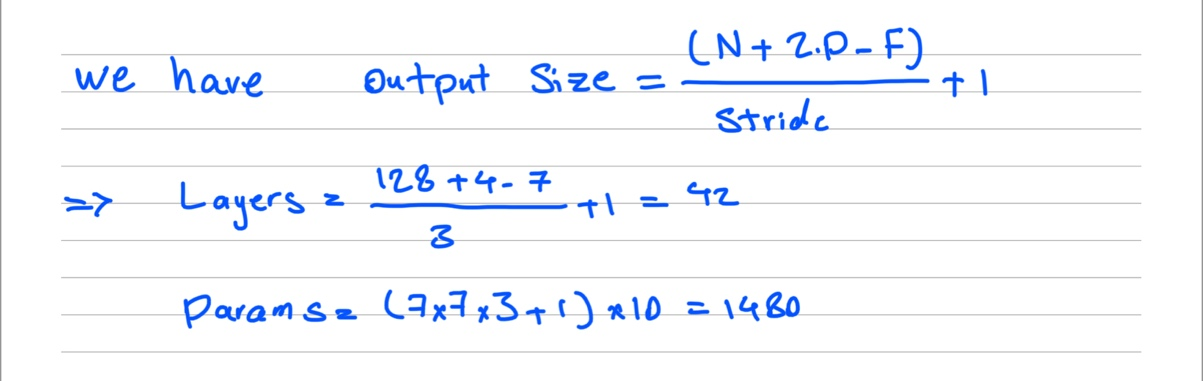 we have output size = (N + 2.P - F) / stride + 1
=> Layers = (128 + 4 - 7) / 3 + 1 = 42
Params = (7x7x3+1) x 10 = 1480